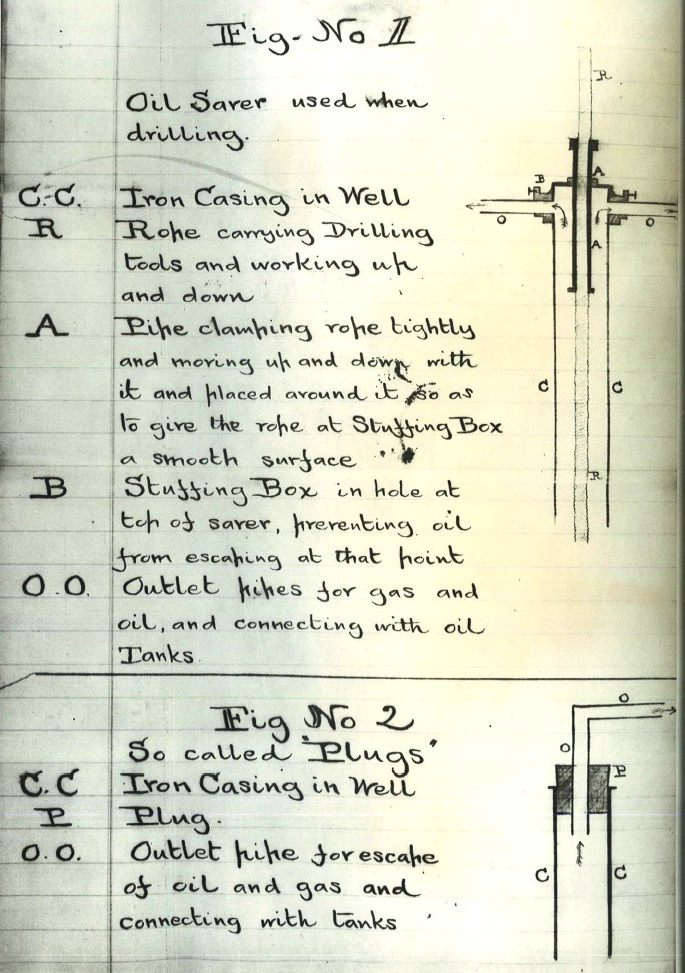 Fig- No 1
Oil Saver used when
drilling.
C.-C. Iron Casing in Well
R Rope carrying Drilling
tools and working up
and down
A Pipe clamping rope tightly
and moving up and down with
it and placed around it so as
to give the rope at Stuffing Box
a smooth surface
B Stuffing Box in hole at
top of saver, preventing oil
from escaping at that point
O.O. Outlet pipes for gas and
oil, and connecting with oil
Tanks.
R
B
A
O
O
A
C
C
R
Fig No 2
So called "Plugs"
C.C Iron Casing in Well
P Plug.
O.O. Outlet pipe for escape
of oil and gas and
connecting with tanks
O
O
P
C
C